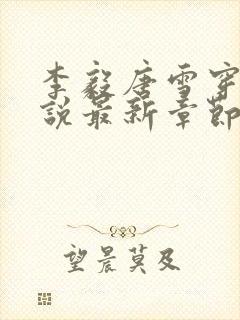 李毅唐雪穿
说最新章节
望晨莫及